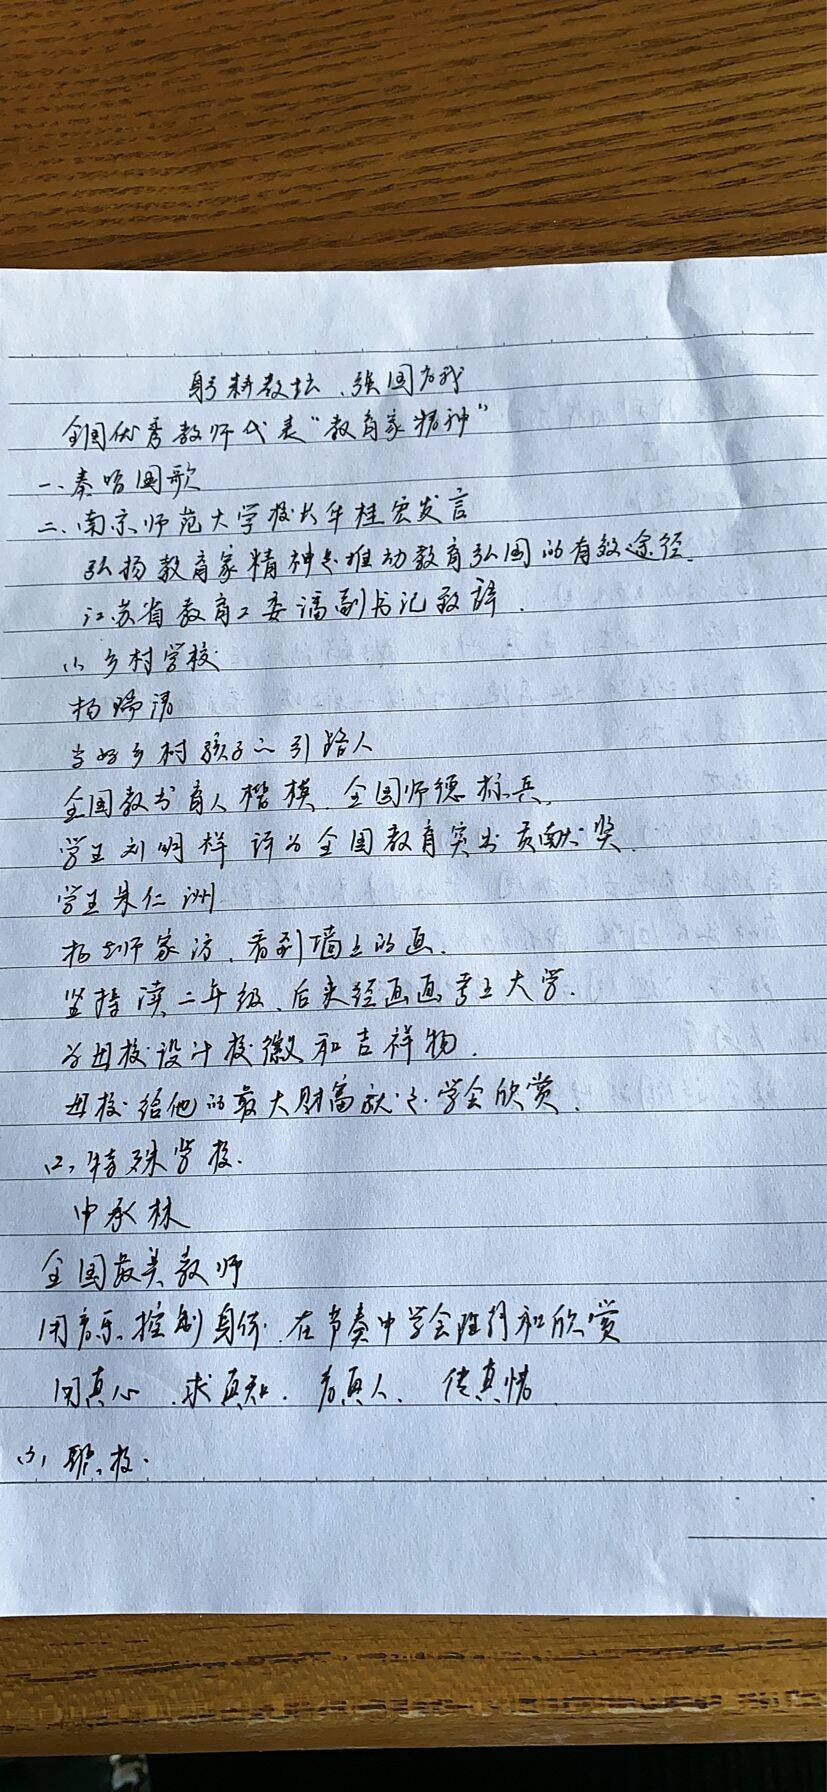 躬耕教坛、强国有我
全国优秀教师代表“教育家精神”
一、奏唱国歌
二、南京师范大学校长华桂宏发言
弘扬教育家精神是推动教育强国的有效途径.
江苏省教育工委潘副书记致辞.
(1) 乡村学校
杨瑞清
当好乡村孩子的引路人
全国教书育人楷模、全国师德标兵.
学生刘明祥 评为全国教育突出贡献奖.
学生朱仁洲
杨老师家访、看到墙上的画.
坚持读二年级、后来经画画考上大学.
为母校设计校徽和吉祥物.
母校给他的最大财富就是学会欣赏.
(2) 特殊学校.
申承林
全国最美教师
用音乐控制身体、在节奏中学会陪伴和欣赏
问真心、求真知、为真人、传真情.
(3) 职校.